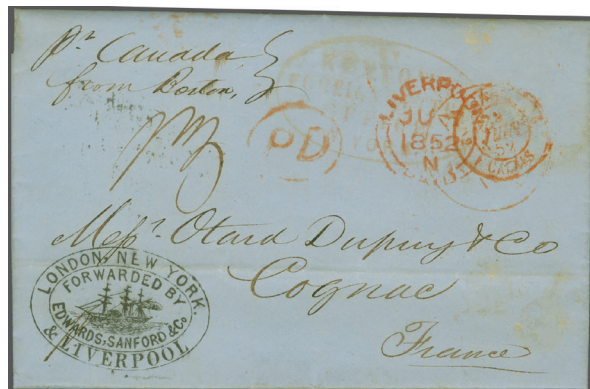 pr Canada
from Boston,
PD
LIVERPOOL
JU
1852
N
CALAIS
Messrs Otard Dupuy & Co
Cognac
France
LONDON, NEW YORK,
FORWARDED BY
EDWARDS, SANFORD & Co
& LIVERPOOL